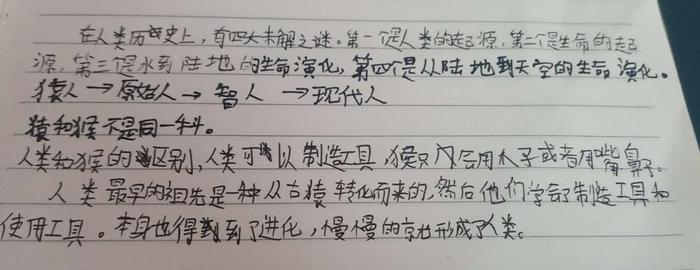 在人类历史上，有四大未解之谜。第一个是人类的起源，第二个是生命的起
源，第三个是水到陆地的生命演化，第四个是从陆地到天空的生命演化。
猿人→原始人→智人→现代人
猿和猴不是同一科。
人类和猴的区别，人类可以制造工具，猴只会用木子或者用嘴鼻子。
人类最早的祖先是一种从古猿转化而来的，然后他们学会了制造工具和
使用工具。本身也得到了进化，慢慢的就形成了人类。